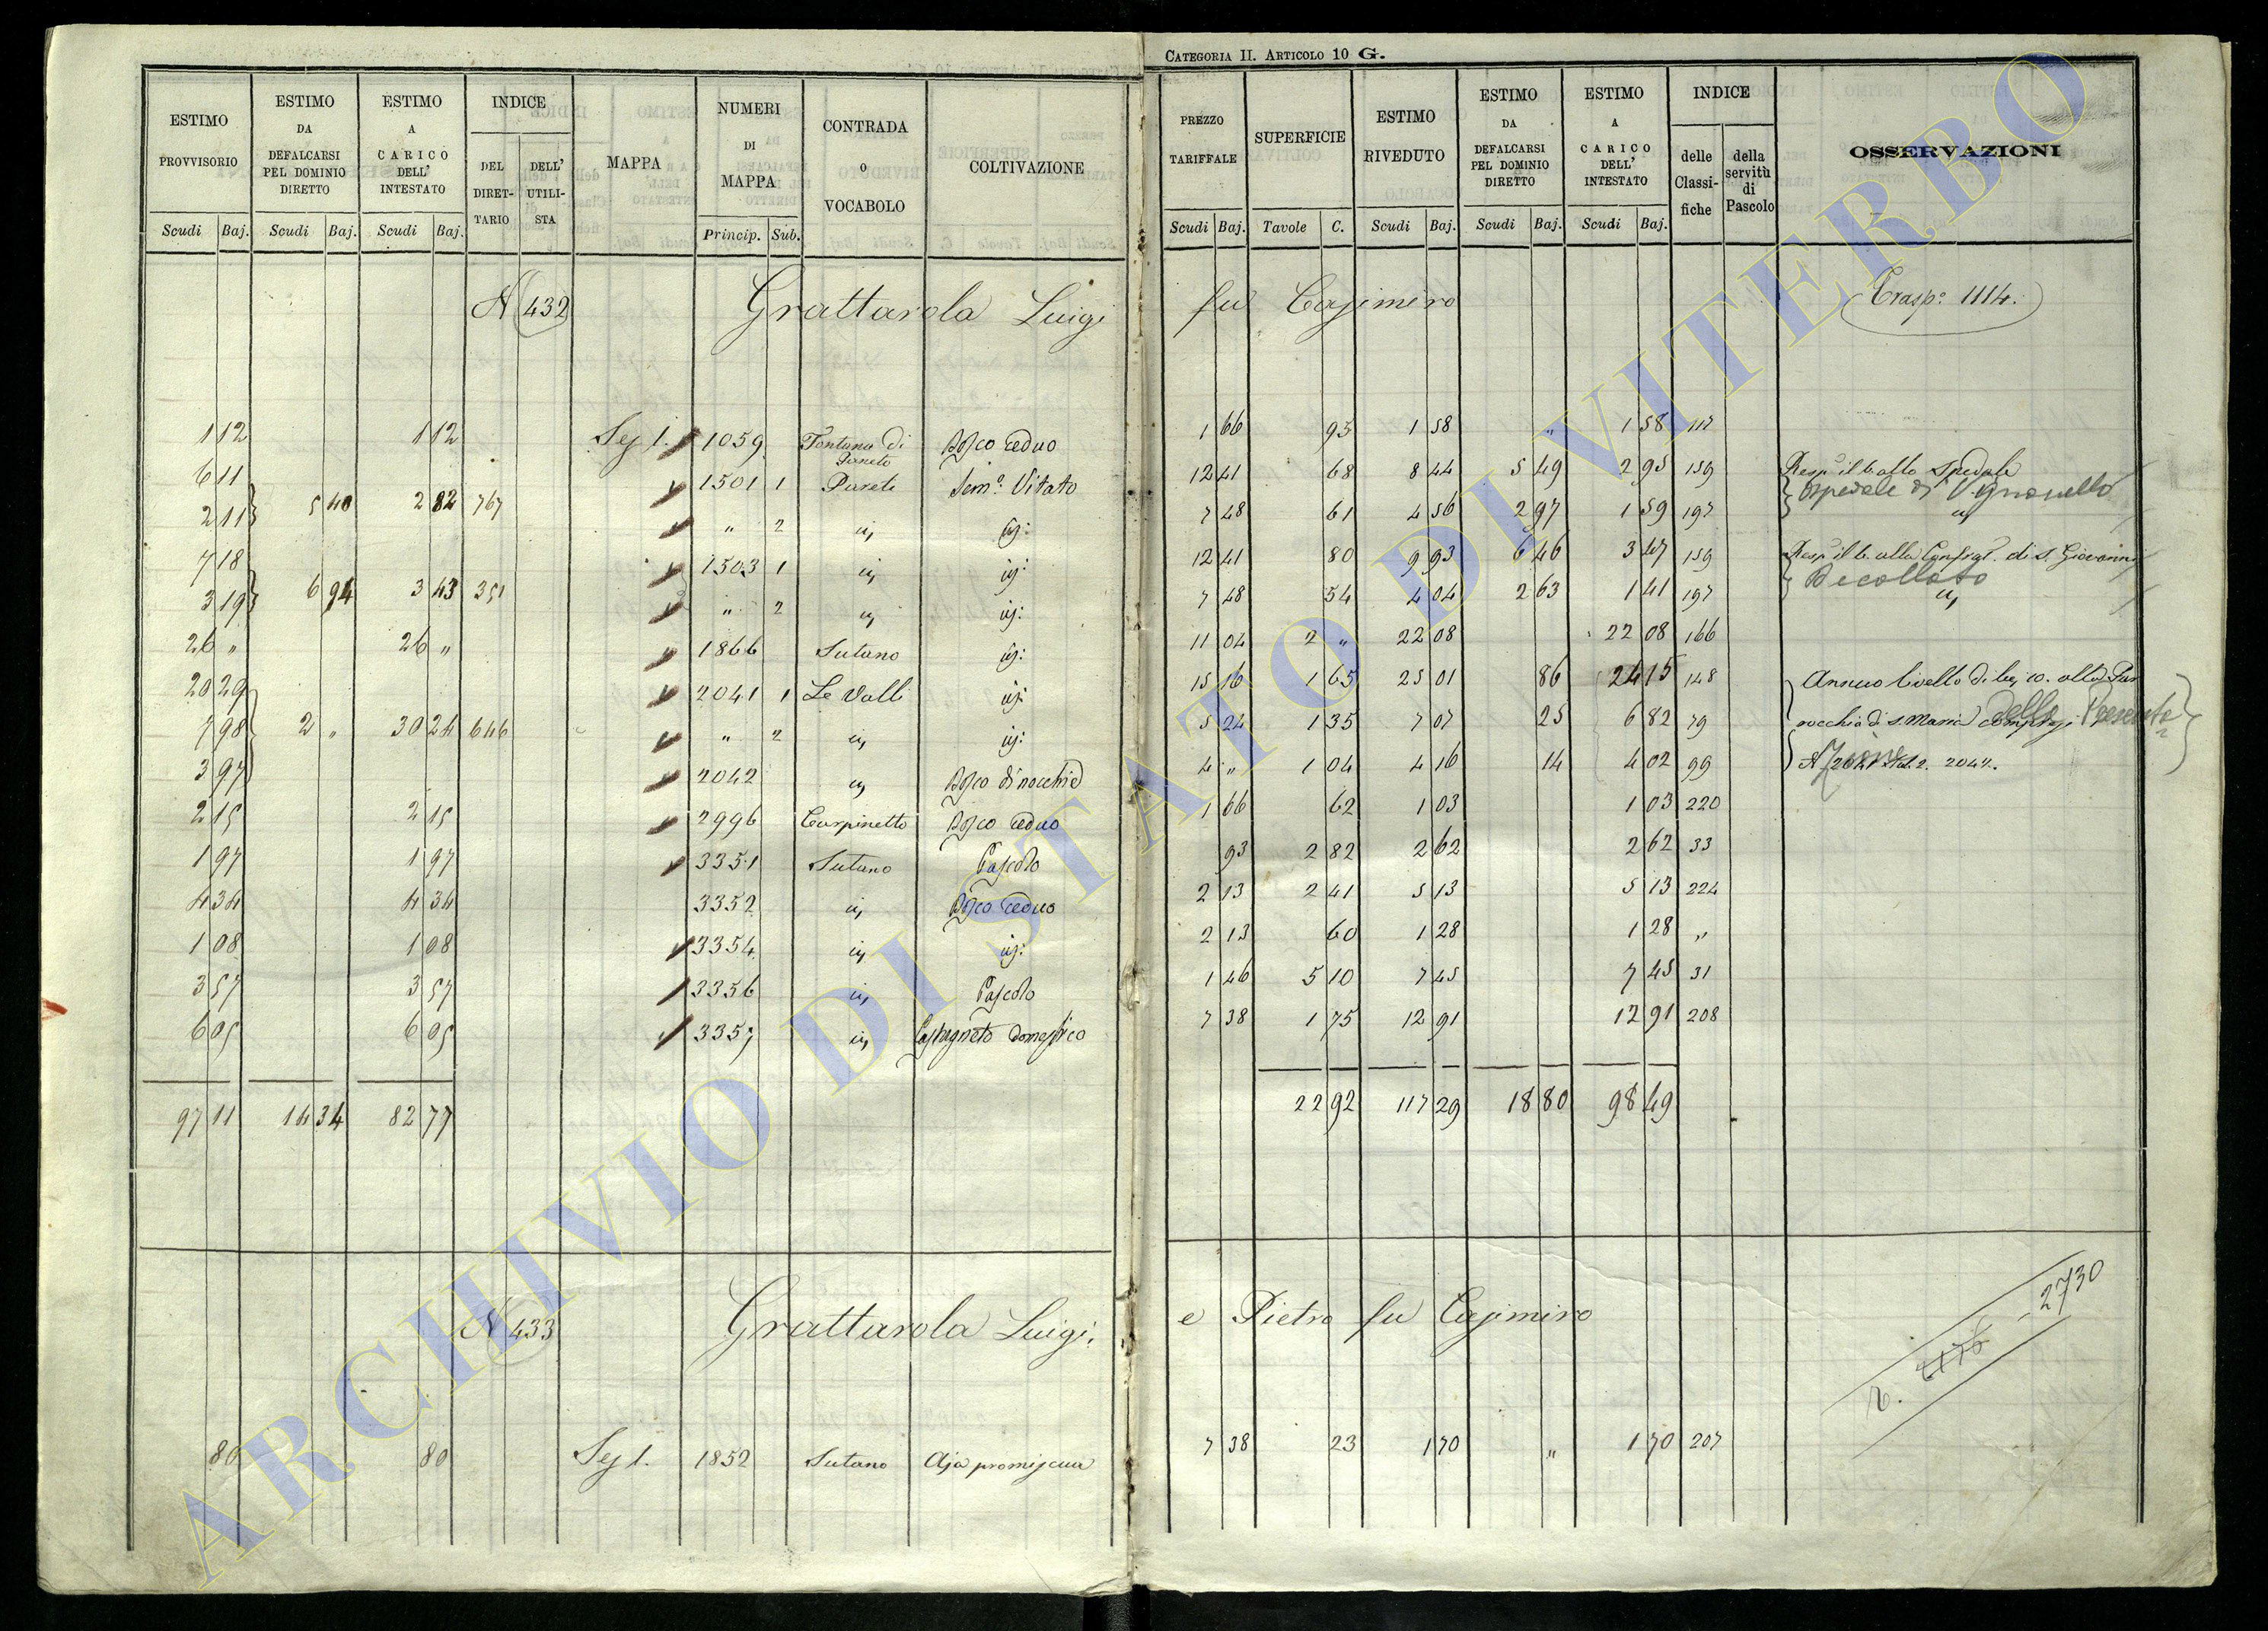 CATEGORIA II. ARTICOLO 10 G.
ESTIMO PROVVISORIO | ESTIMO DA DEFALCARSI PEL DOMINIO DIRETTO | ESTIMO A CARICO DELL' INTESTATO | INDICE DEL DIRETTARIO | DELL' UTILISTA | MAPPA | NUMERI DI MAPPA | CONTRADA O VOCABOLO | COLTIVAZIONE
Scudi Baj. | Scudi Baj. | Scudi Baj. | Princip. Sub.
PREZZO TARIFFALE | SUPERFICIE | ESTIMO RIVEDUTO | ESTIMO DA DEFALCARSI PEL DOMINIO DIRETTO | ESTIMO A CARICO DELL' INTESTATO | INDICE delle Classifiche | della servitù di Pascolo | OSSERVAZIONI
Scudi Baj. | Tavole C. | Scudi Baj. | Scudi Baj. | Scudi Baj.
N 432 Grattarola Luigi fu Casimiro Trasp: 1114.
1 12 | 1 12 | Sez 1. 1059 | Fontana di | Bosco ceduo | 1 66 | 95 | 1 58 | " | 1 58 | 117
6 11 | 1501 1 | Pareti | Sem: Vitato | 12 41 | 68 | 8 44 | 5 49 | 2 95 | 159 | Resp: il b. allo Spedale
5 40 | 2 82 | 767 | Ospedale di Vignanello
2 11 | " 2 | id | id: | 7 48 | 61 | 4 56 | 2 97 | 1 59 | 197 | id
7 18 | 1503 1 | id | id: | 12 41 | 80 | 9 93 | 6 46 | 3 47 | 159 | Resp: il b. alla Confrat. di S. Giovanni
6 94 | 3 43 | 351 | Decollato
3 19 | " 2 | id | id: | 7 48 | 54 | 4 04 | 2 63 | 1 41 | 197 | id
26 " | 26 " | 1866 | Sutano | id: | 11 04 | 2 " | 22 08 | 22 08 | 166
20 29 | 2041 1 | Le Valli | id: | 15 16 | 1 65 | 25 01 | 86 | 24 15 | 148 | Annuo livello di baj. 10. alla Par
7 98 | 2 " | 30 24 | 646 | " 2 | id | id: | 5 24 | 1 35 | 7 07 | 25 | 6 82 | 79 | rocchia di S. Maria della Presenta
3 97 | 2042 | id | Bosco di nocchie | 4 " | 1 04 | 4 16 | 14 | 4 02 | 99 | zione
2 15 | 2 15 | 2996 | Carpinetto | Bosco ceduo | 1 66 | 62 | 1 03 | 1 03 | 220
1 97 | 1 97 | 3351 | Sutano | Pascolo | 93 | 2 82 | 2 62 | 2 62 | 33
4 34 | 4 34 | 3352 | id | Bosco ceduo | 2 13 | 2 41 | 5 13 | 5 13 | 224
1 08 | 1 08 | 3354 | id | id: | 2 13 | 60 | 1 28 | 1 28 | "
3 57 | 3 57 | 3356 | id | Pascolo | 1 46 | 5 10 | 7 45 | 7 45 | 31
6 05 | 6 05 | 3357 | id | Castagneto domestico | 7 38 | 1 75 | 12 91 | 12 91 | 208
97 11 | 14 34 | 82 77 | 22 92 | 117 29 | 18 80 | 98 49
N 433 Grattarola Luigi, e Pietro fu Casimiro
2730
80 | 80 | Sez 1. 1852 | Sutano | Aja promiscua | 7 38 | 23 | 1 70 | " | 1 70 | 207
ARCHIVIO DI STATO DI VITERBO